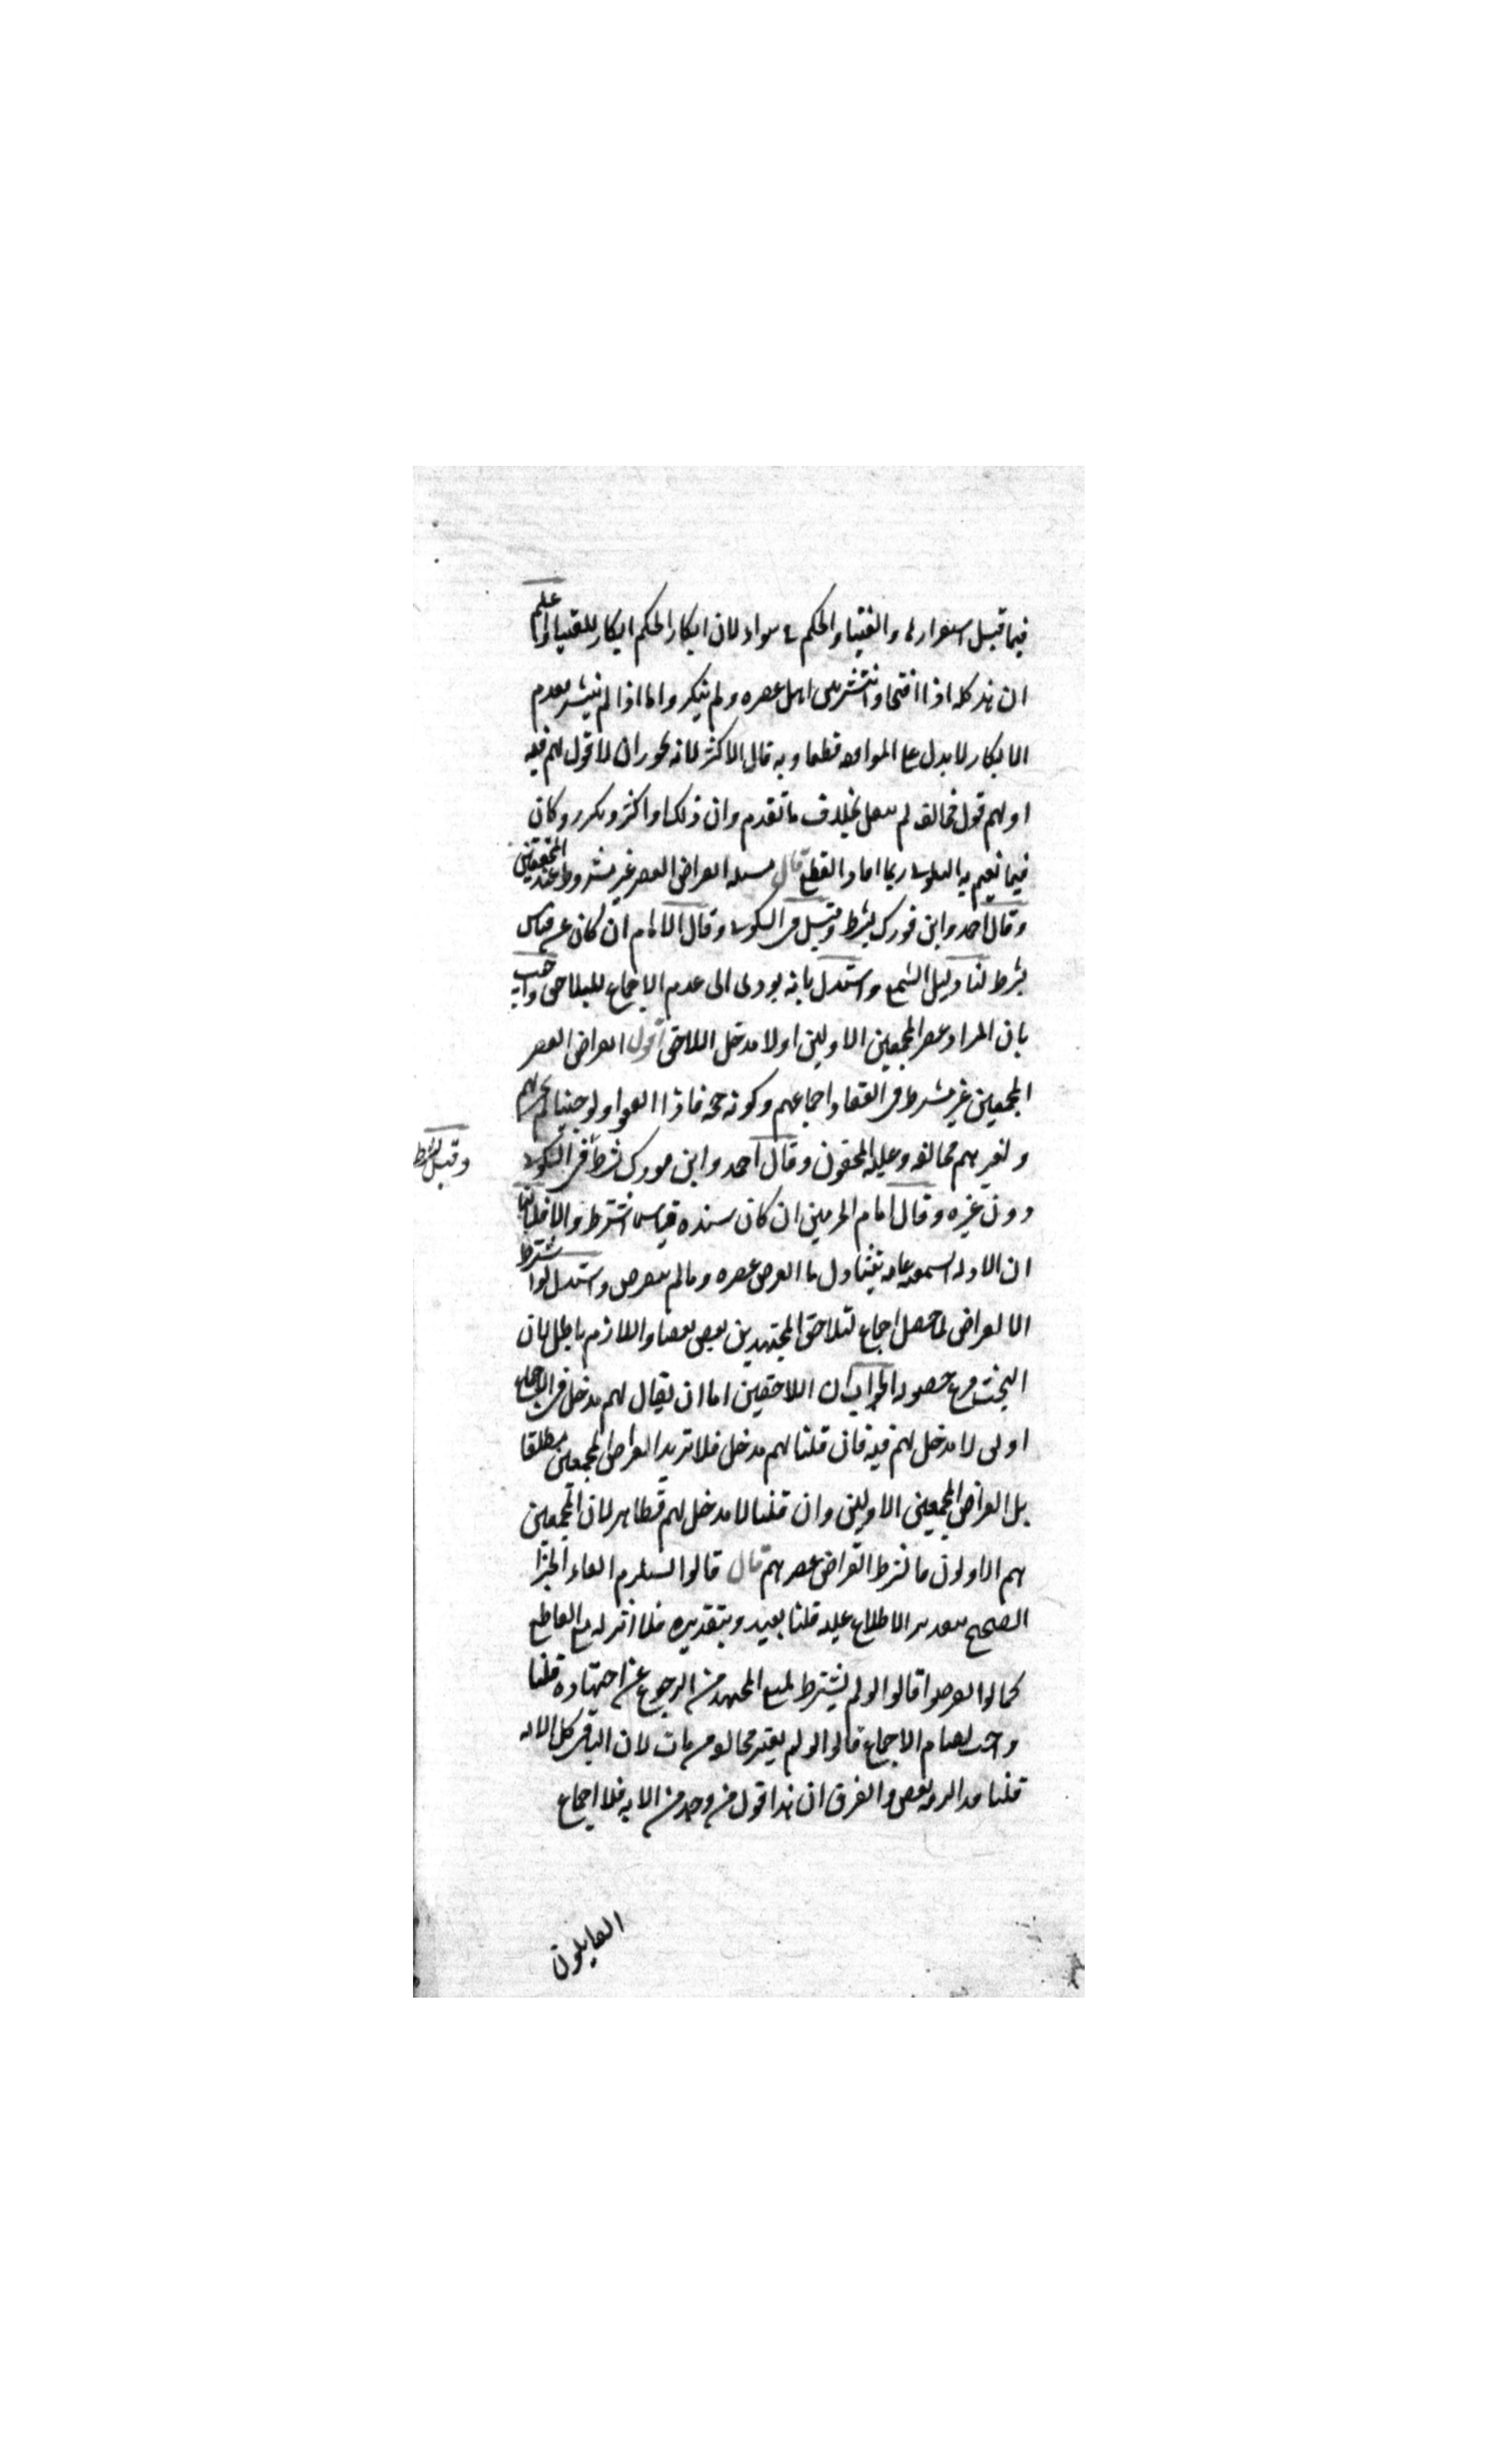 فيما قبل استقرارها والفتيا والحكم سواء لان انكار الحكم انكار للفتيا واعلم
ان هذا كله اذا افتى وانتشر بين اهل عصره ولم ينكروا اما اذا لم ينتشر فعدم
الانكار لا يدل على الموافقه قطعا وبه قال الاكثر لانه يجوز ان لا قول لهم فيه
او لهم قول مخالف لم ينقل بخلاف ما تقدم وان ذلك اذا كثر وتكرر وكان
فيما تعم به البلوى ربما افاد القطع قال مسئله انقراض العصر غير مشروط عند المحققين
وقال احمد وابن فورك يشترط وقيل في السكوتى وقال الامام ان كان عن قياس
يشترط لنا دليل السمع واستدل بانه يودى الى عدم الاجماع للتلاحق واجيب
بان المراد عصر المجمعين الاولين او لا مدخل للاحق اقول انقراض العصر
المجمعين غير مشترط فى انعقاد اجماعهم وكونه حجه فاذا اتفقوا ولو حينا لم يجز لهم
ولغيرهم مخالفته وعليه المحققون وقال احمد وابن فورك يشترط فى السكوتى
وقيل يشترط
دون غيره وقال امام الحرمين ان كان سنده قياسا اشترط والا فلا لنا
ان الادله السمعيه عامه تتناول ما انقرض عصره وما لم ينقرض واستدل لو اشترط
الانقراض لما حصل اجماع لتلاحق المجتهدين بعض بعضا واللازم باطل لان
البحث فرع حصوله الجواب ان اللاحقين اما ان يقال لهم مدخل فى الاجماع
اولى لا مدخل لهم فيه فان قلنا لهم مدخل فلا نريد انقراض المجمعين مطلقا
بل انقراض المجمعين الاولين وان قلنا لا مدخل لهم فظاهر لان المجمعين
هم الاولون فانشرط انقراض عصرهم قال قالوا يستلزم الغاء الخبر
الصحيح بتقدير الاطلاع عليه قلنا بعيد وبتقديره فلا اثر له مع القاطع
كما لو انقرضوا قالوا لو لم يشترط لمنع المجتهد من الرجوع عن اجتهاده قلنا
واجب لقيام الاجماع قالوا لو لم يعتبر مخالفه من مات لان الباقى كل الامه
قلنا قد التزمه بعض والفرق ان هذا قول من وجد من الامه فلا اجماع
القايلون